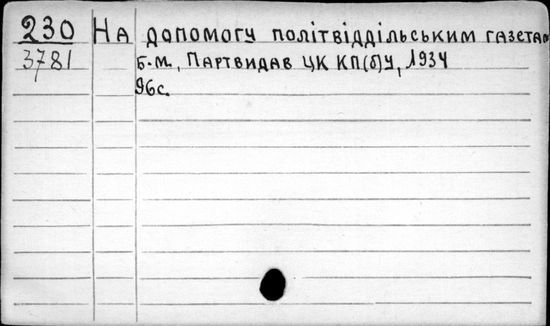 230 На допомогу політвіддільським газетам
3781 б.м., Партвидав ЦК КП(б)У, 1934
96с.